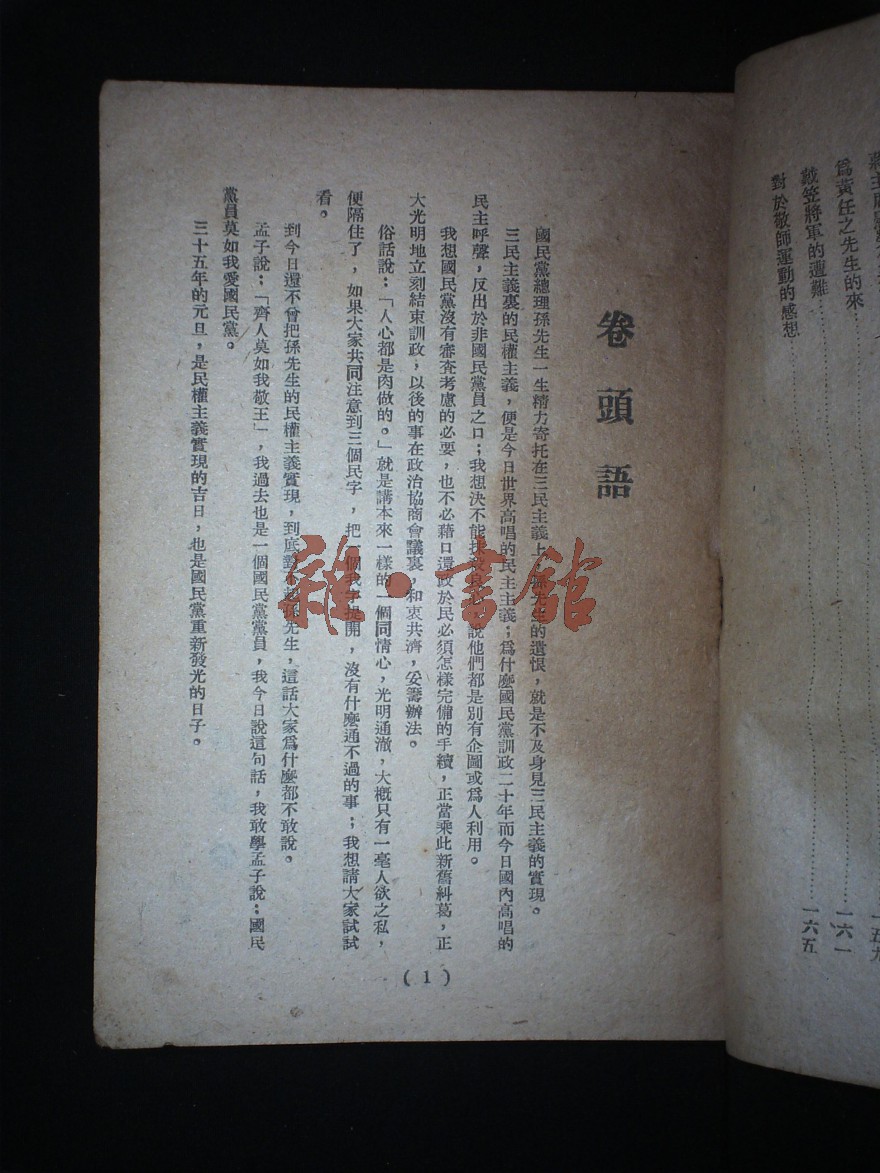 蔣主席
一五九
爲黃任之先生的來……一六一
戴笠將軍的遭難
對於敬師運動的感想……一六五
卷頭語
國民黨總理孫先生一生精力寄托在三民主義上,孫先生的遺恨,就是不及身見三民主義的實現。
三民主義裏的民權主義,便是今日世界高唱的民主主義;爲什麼國民黨訓政二十年而今日國內高唱的
民主呼聲,反出於非國民黨員之口;我想決不能抹說他們都是別有企圖或爲人利用。
我想國民黨沒有審查考慮的必要,也不必藉口還政於民必須怎樣完備的手續,正當乘此新舊糾葛,正
大光明地立刻結束訓政,以後的事在政治協商會議裏,和衷共濟,妥籌辦法。
俗話說:「人心都是肉做的。」就是講本來一樣的一個同情心,光明通澈,大槪只有一毫人欲之私,
便隔住了,如果大家共同注意到三個民字,把一個我字提開,沒有什麼通不過的事;我想請大家試試
看。
到今日還不曾把孫先生的民權主義實現,到底對不起孫先生,這話大家爲什麼都不敢說。
孟子說:「齊人莫如我敬王」,我過去也是一個國民黨黨員,我今日說這句話,我敢學孟子說:國民
黨員莫如我愛國民黨。
三十五年的元旦,是民權主義實現的吉日,也是國民黨重新發光的日子。
(1)
雜·書館